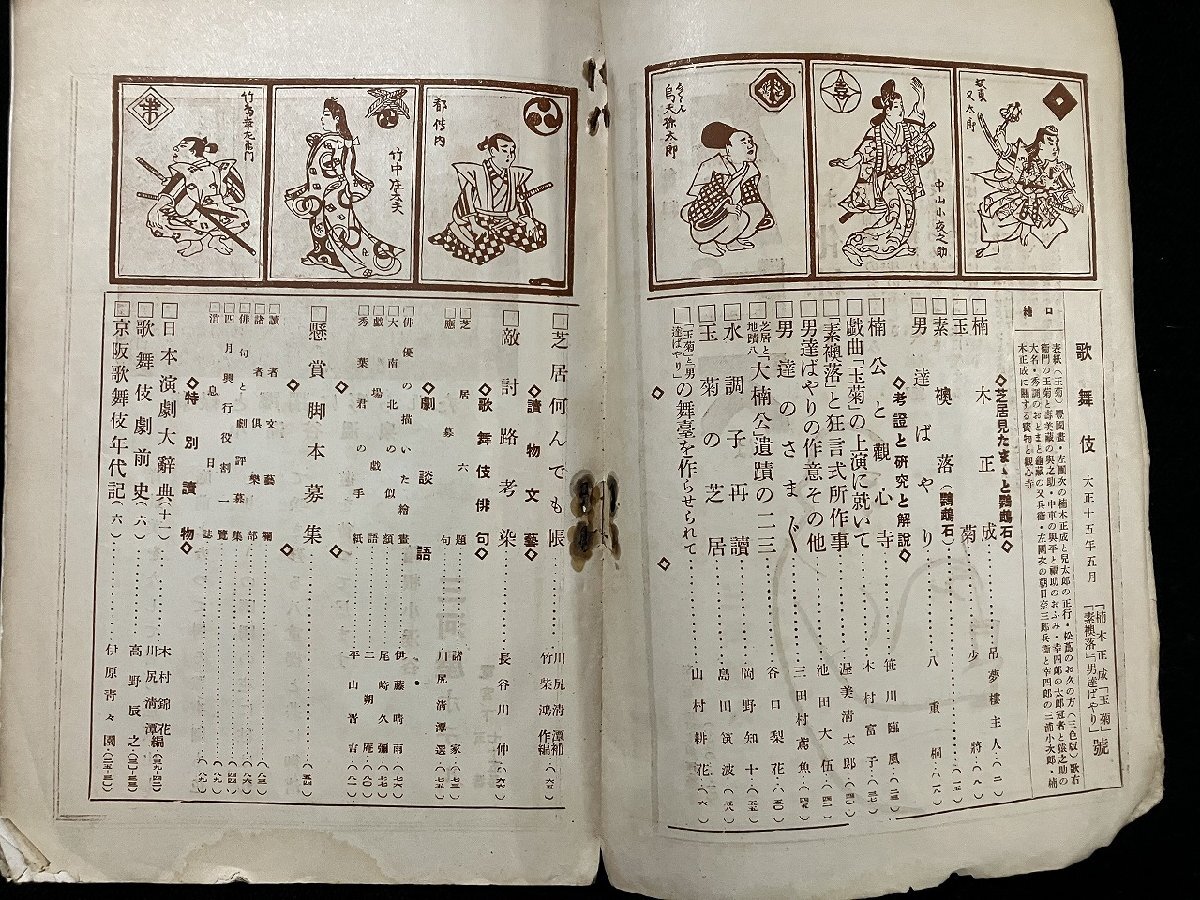 竹中庄太夫
都傳内
中山小夜之助
又太郎
歌舞伎 大正十五年五月 「楠木正成」「玉菊」「素襖落」「男達ばやり」號
口繪
表紙(玉菊)豐國畫・左團次の楠木正成と兒太郎の正行・松蔦のお久の方(三色版)歌右
衞門の玉菊と壽美藏の與之助・中車の與平と福助のおふみ・幸四郎の太郎冠者と猿之助の
大名・秀調のおとまと龜藏の又兵衞・左團次の朝日奈三郎兵衞と幸四郎の三浦小次郎・楠
木正成に關する寶物と觀心寺
◇芝居見たまゝと鸚鵡石◇
楠木正成 吊夢樓主人(二)
玉菊 少將(八)
素襖落(鸚鵡石) (一五)
男達ばやり 八重桐(一六)
◇考證と研究と解說◇
楠公と觀心寺 笹川臨風(三三)
戲曲「玉菊」の上演に就いて 木村富子(三七)
「素襖落」と狂言式所作事 渥美清太郎(四〇)
男達ばやりの作意その他 池田大伍(四一)
男達のさまざま 三田村鳶魚(四五)
芝居と地蹟八「大楠公」遺蹟の二三 谷口梨花(五〇)
水調子再讀 岡野知十(五五)
玉菊の芝居 島田筑波(五八)
「玉菊」と「男達ばやり」の舞臺を作らせられて 山村耕花(六一)
芝居何んでも帳 川尻清潭補 竹柴鴻作編(六五)
◇讀物文藝◇
敵討路考染 長谷川伸(六六)
◇歌舞伎俳句◇
芝居六題 諸家(七三)
應募句 川尻清潭選(七五)
◇劇談語◇
俳優の描いた繪畫 伊藤晴雨(七六)
大南北の似顏 尾崎久彌(七八)
戲場の戲語 二朔庵(八〇)
秀葉君の手紙 平山晋吉(八一)
懸賞脚本募集 (五四)
讀者文藝欄 (八三)
諸者俱樂部 (八六)
俳句と劇評募集 (四四)
四月興行役割一覽
消息日誌
◇特別讀物◇
日本演劇大辭典(十一) 木村錦花 川尻清潭編(三九—四二)
歌舞伎劇前史(六) 高野辰之
京阪歌舞伎年代記(六) 伊原靑々園